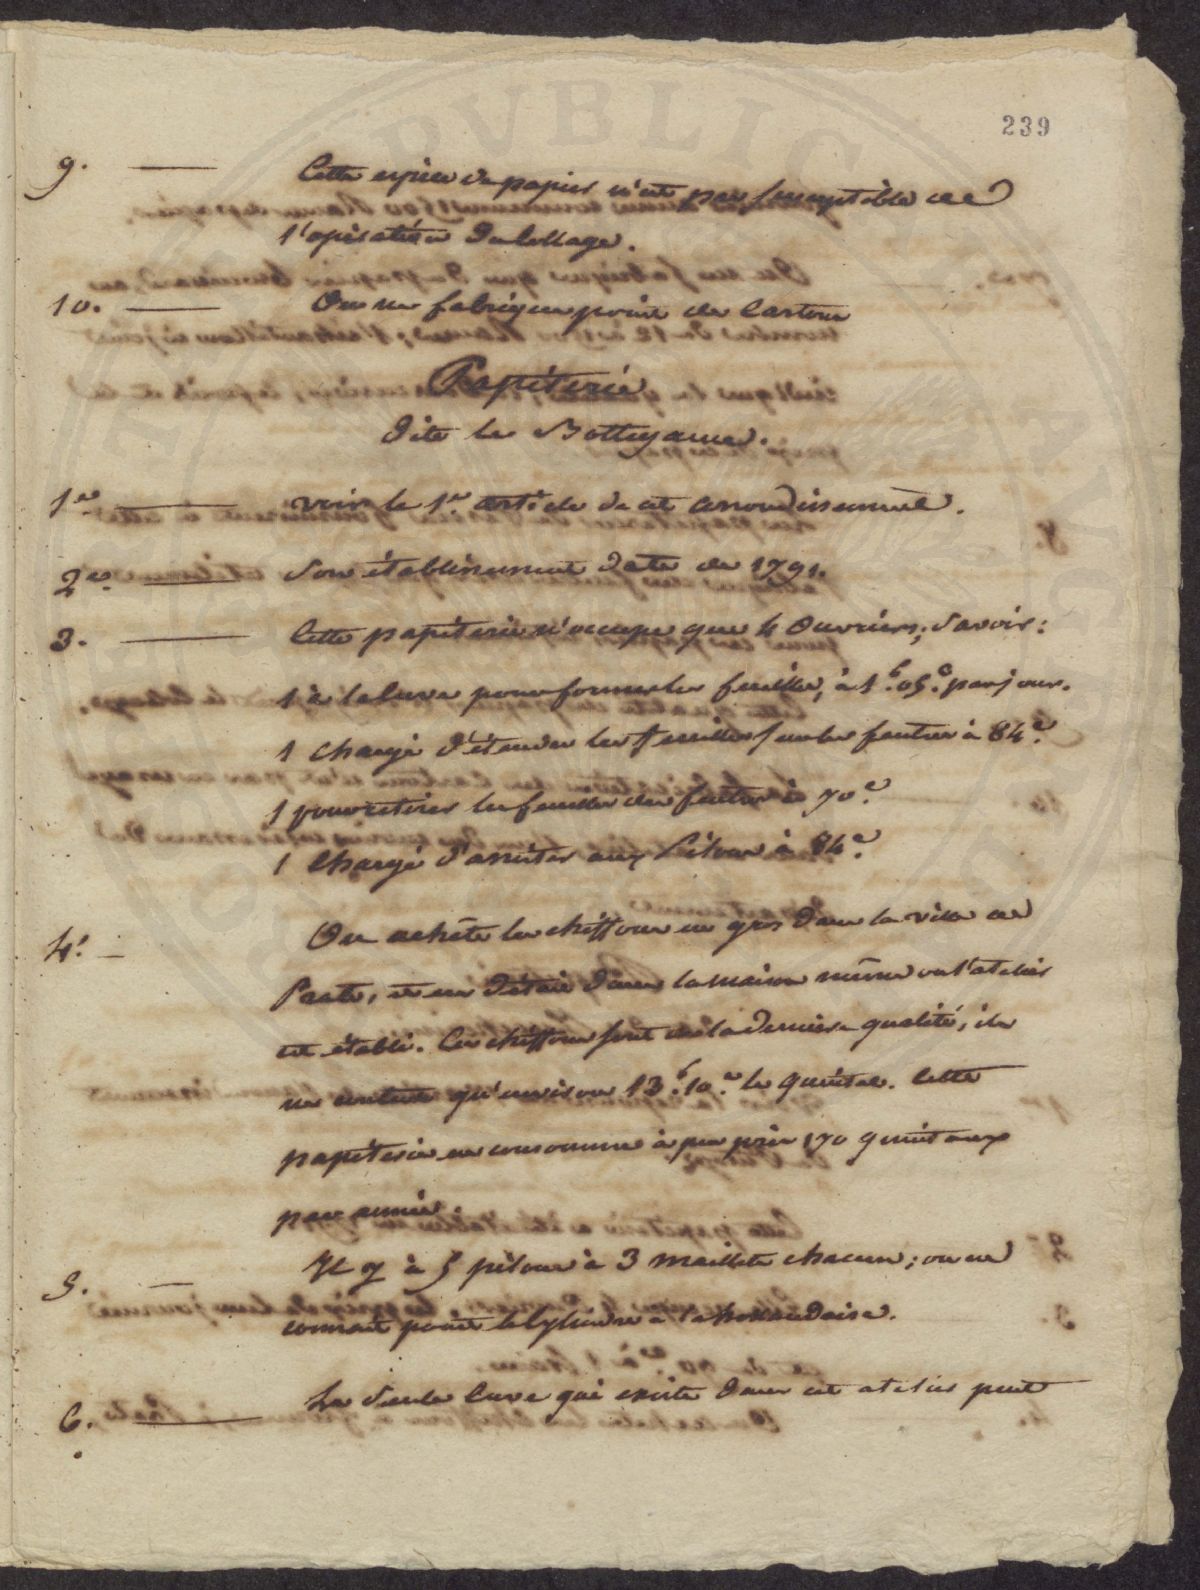 239
9. Cette espèce de papier n'est pas susceptible de
l'opération du collage.
10. On ne fabrique point de Carton
Papéterie
dite la
1re voir le 1er article de cet arrondissement.
2e Son établissement date de 1791.
3. Cette papéterie n'occupe que 4 Ouvriers; Savoir:
1 à la Cuve pour former les feuilles, à 1f. 05c. par jour.
1 Chargé d'étendre les feuilles sur les feutres à 84c.
1 pour retirer les feuilles des feutres à 70c.
1 Chargé d'assister aux Pilons à 84c.
4. On achète les chiffons en gros dans la ville de
Prato, et en détail dans la maison même où l'atelier
est établi. Ces chiffons sont de la dernière qualité; ils
ne coutent qu'environ 13f. 10c. le quintal. Cette
papéterie en consomme à peu près 170 quintaux
par année.
5. Il y à 5 pilons à 3 maillets chacun; on ne
connait point le Cylindre à la hollandaise.
6. La Seule Cuve qui existe dans cet atelier peut